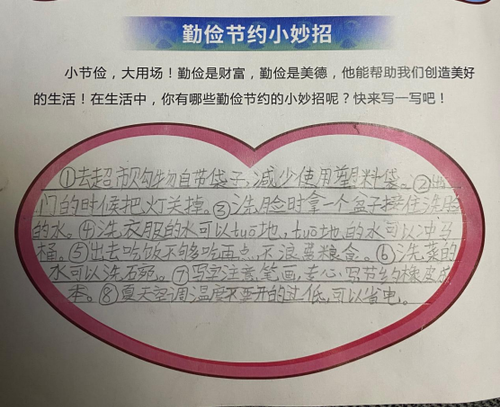 勤俭节约小妙招
小节俭，大用场！勤俭是财富，勤俭是美德，他能帮助我们创造美好
的生活！在生活中，你有哪些勤俭节约的小妙招呢？快来写一写吧！
①去超市购物自带袋子，减少使用塑料袋。②出
门的时候把灯关掉。③洗脸时拿一个盆子接住洗脸
的水。④洗衣服的水可以tuo地，tuo地的水可以冲马
桶。⑤出去吃饭不够吃再点，不浪费粮食。⑥洗菜的
水可以洗石。⑦写字注意笔画，专心写节约橡皮
本。⑧夏天空调温度不要开的过低，可以省电。